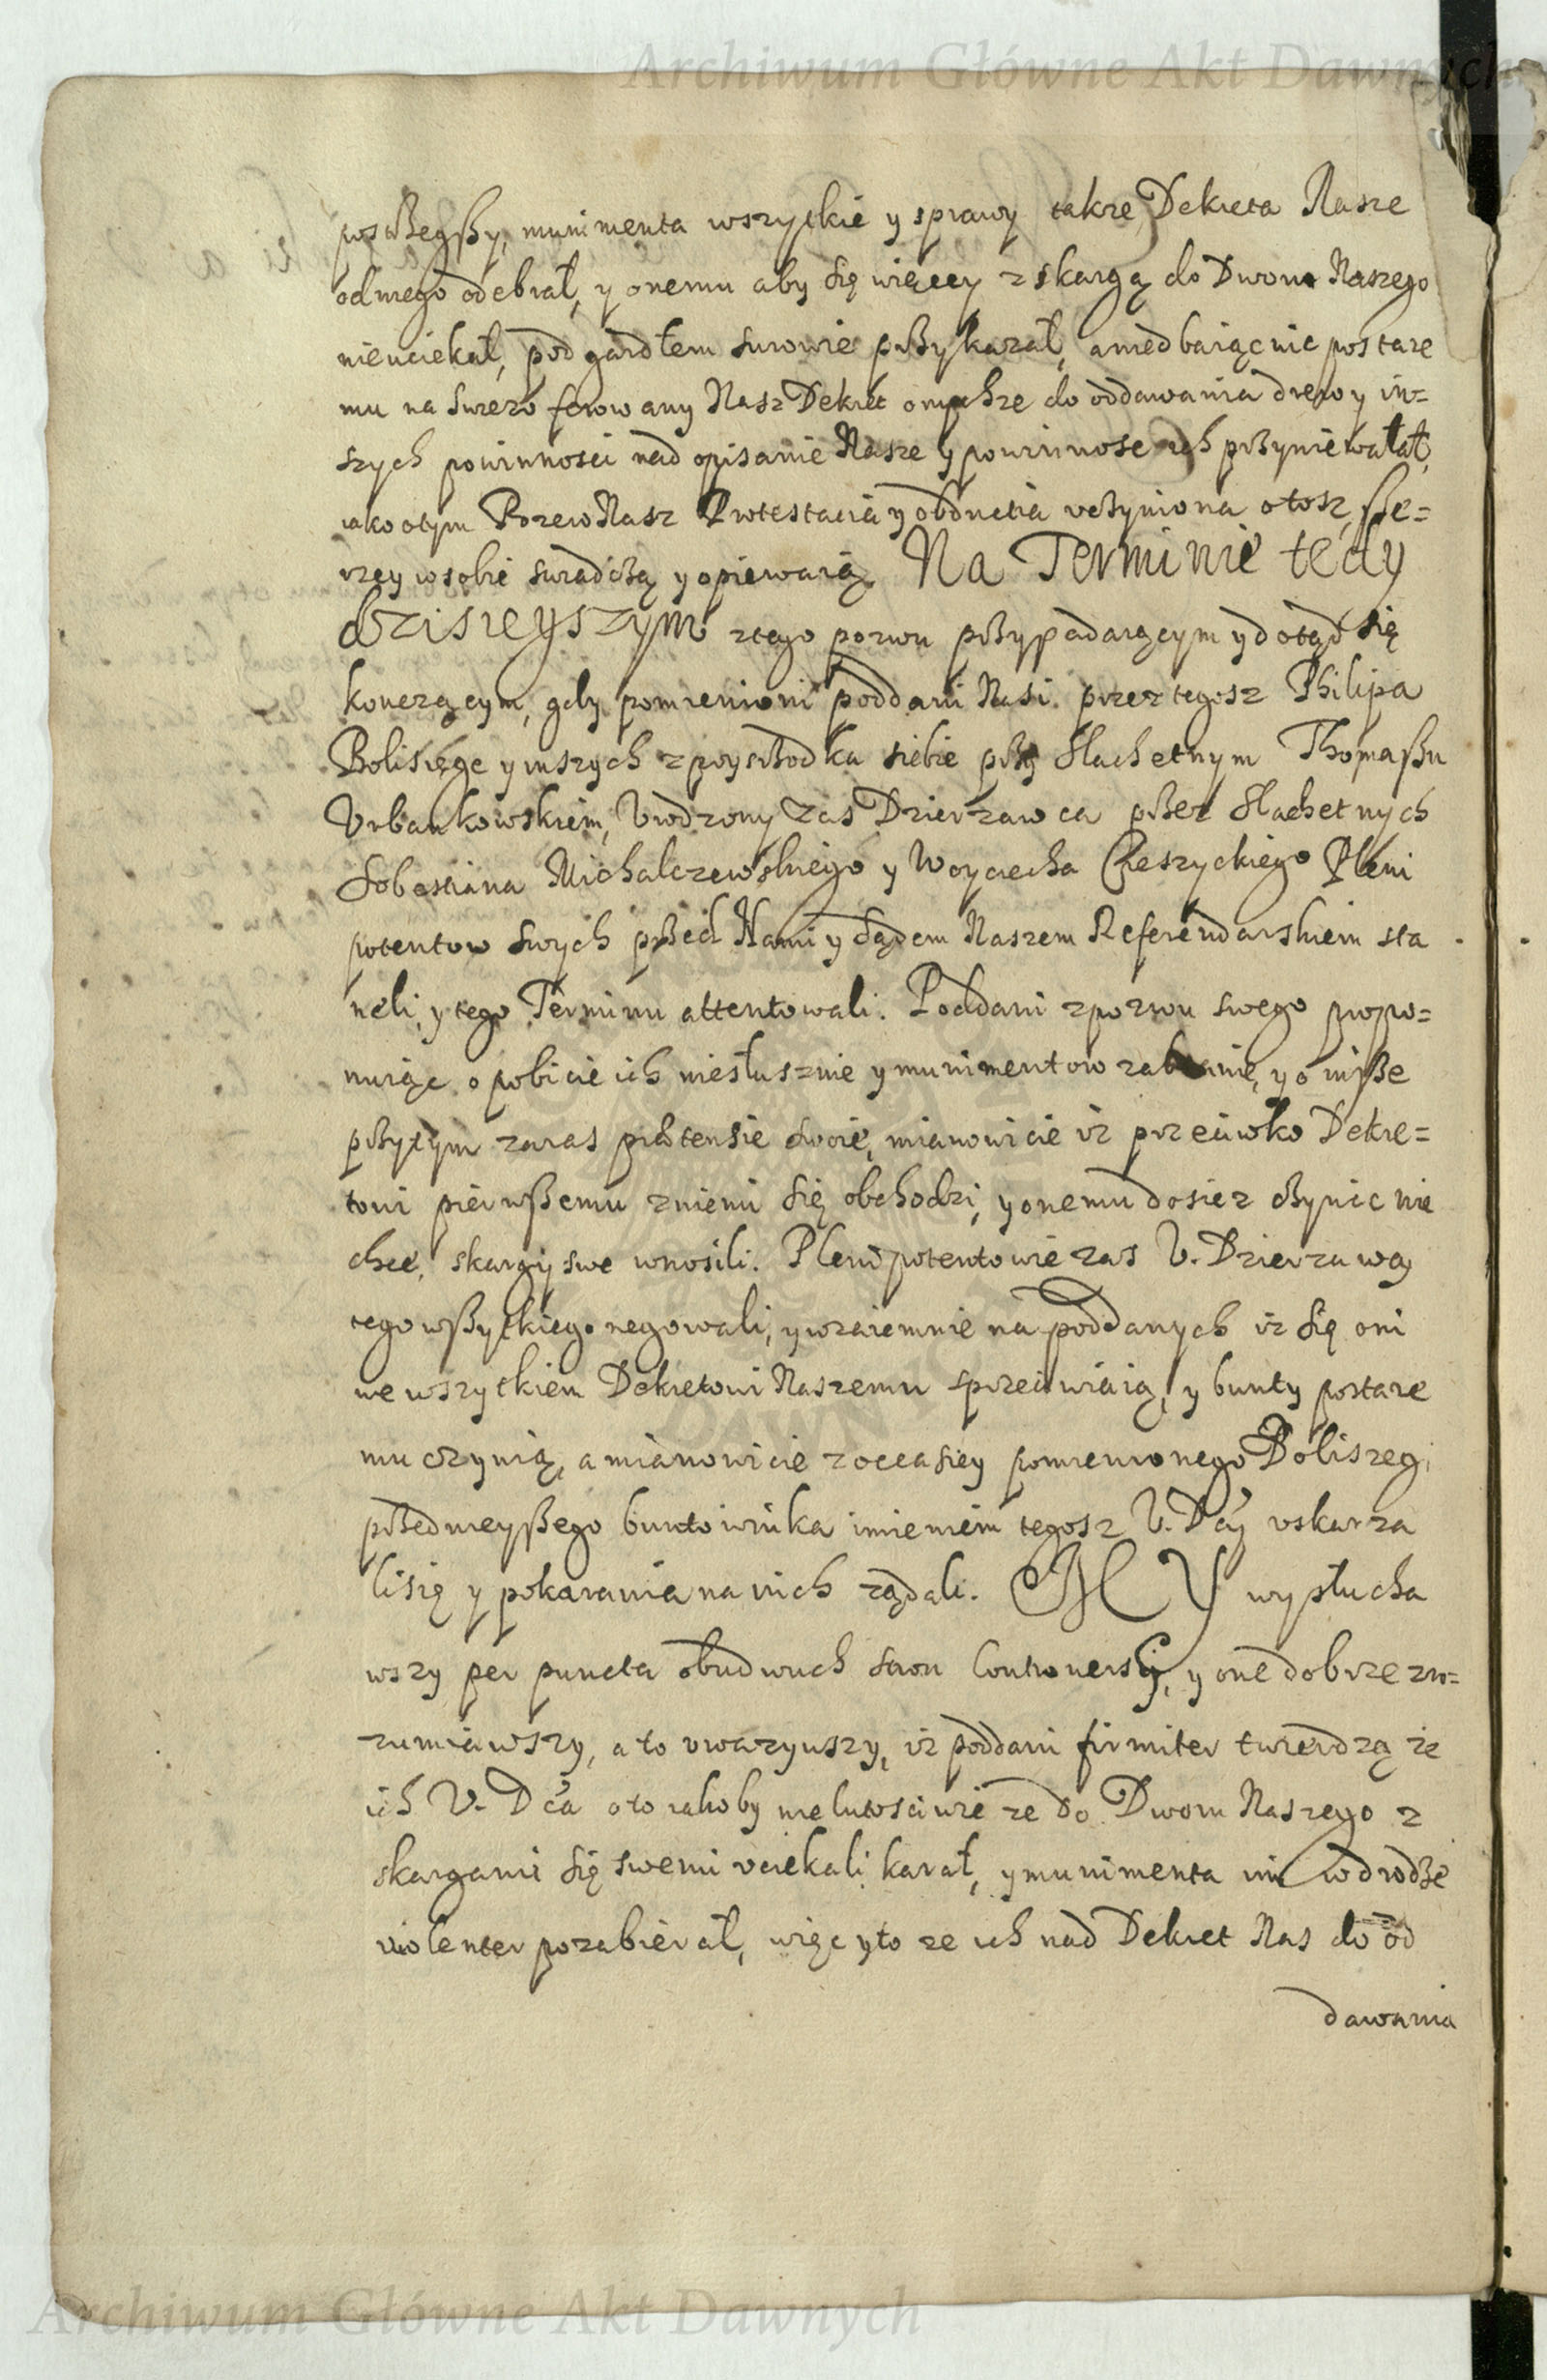 Archiwum Główne Akt Dawnych
munimenta wszytkie y sprawy takze Dekreta Nasze
odniego odebrał, y onemu aby się więcey z skargą do Dworu Naszego
nieuciekał, pod gardłem surowie przykazał, a niedbaiąc nic postare
mu na swiezo ferowany Nasz Dekret onychze do oddawania drew y in=
szych powinnosci nad opisanie Nasze y powinnosc ich przyniewalał,
iako otym Pozew Nasz Protestacia y obductia uczyniona otosz sze=
rzey w sobie swiadczą y opiewaią. Na Terminie tedy
dzisieyszym z tego pozwu przypadaiącym y dotąd się
konczącym, gdy pomienieni poddani Nasi przez tegosz Philipa
Bolisięgę y inszych z posrzodka siebie przy Slachetnym Thomaszu
Urbankowskiem, Urodzony zas Dzierzawca przez Slachetnych
Sobestiana Michalczewskiego y Woyciecha Pleni
potentow swych przed Nami y Sądem Naszem Referendarskiem sta
neli, y tego Terminu attentowali. Poddani z pozwu swego propo=
nuiąc o pobicie ich niesłusznie y munimentow zabranie, y o insze
przytym zaras praetensie swoie, mianowicie iz przeciwko Dekre=
towi pierwszemu z niemi się obchodzi, y onemu dosicz czynic nie
chce, skargi swe wnosili. Plenipotentowie zas U. Dzierzawcy
tego wszytkiego negowali, y wzaiemnie na poddanych iz się oni
we wszytkiem Dekretowi Naszemu sprzeciwiaią, y bunty postare
mu czynią, a mianowicie z occasiey pomienionego Boliszegi
przednieyszego buntownika imieniem tegosz U. Dcy uskarza
li się y pokarania na nich ządali. MY wysłucha
wszy per puncta obudwuch stron Controversiy, y one dobrze zro=
zumiawszy, a to uwazywszy, iz poddani firmiter twierdzą ze
ich U. Dca oto iakoby nielutosciwie ze do Dworu Naszego z
skargami się swemi uciekali karał, y munimenta im w drodze
violenter pozabierał, więc y to ze ich nad Dekret Nas do od
dawania
Archiwum Główne Akt Dawnych